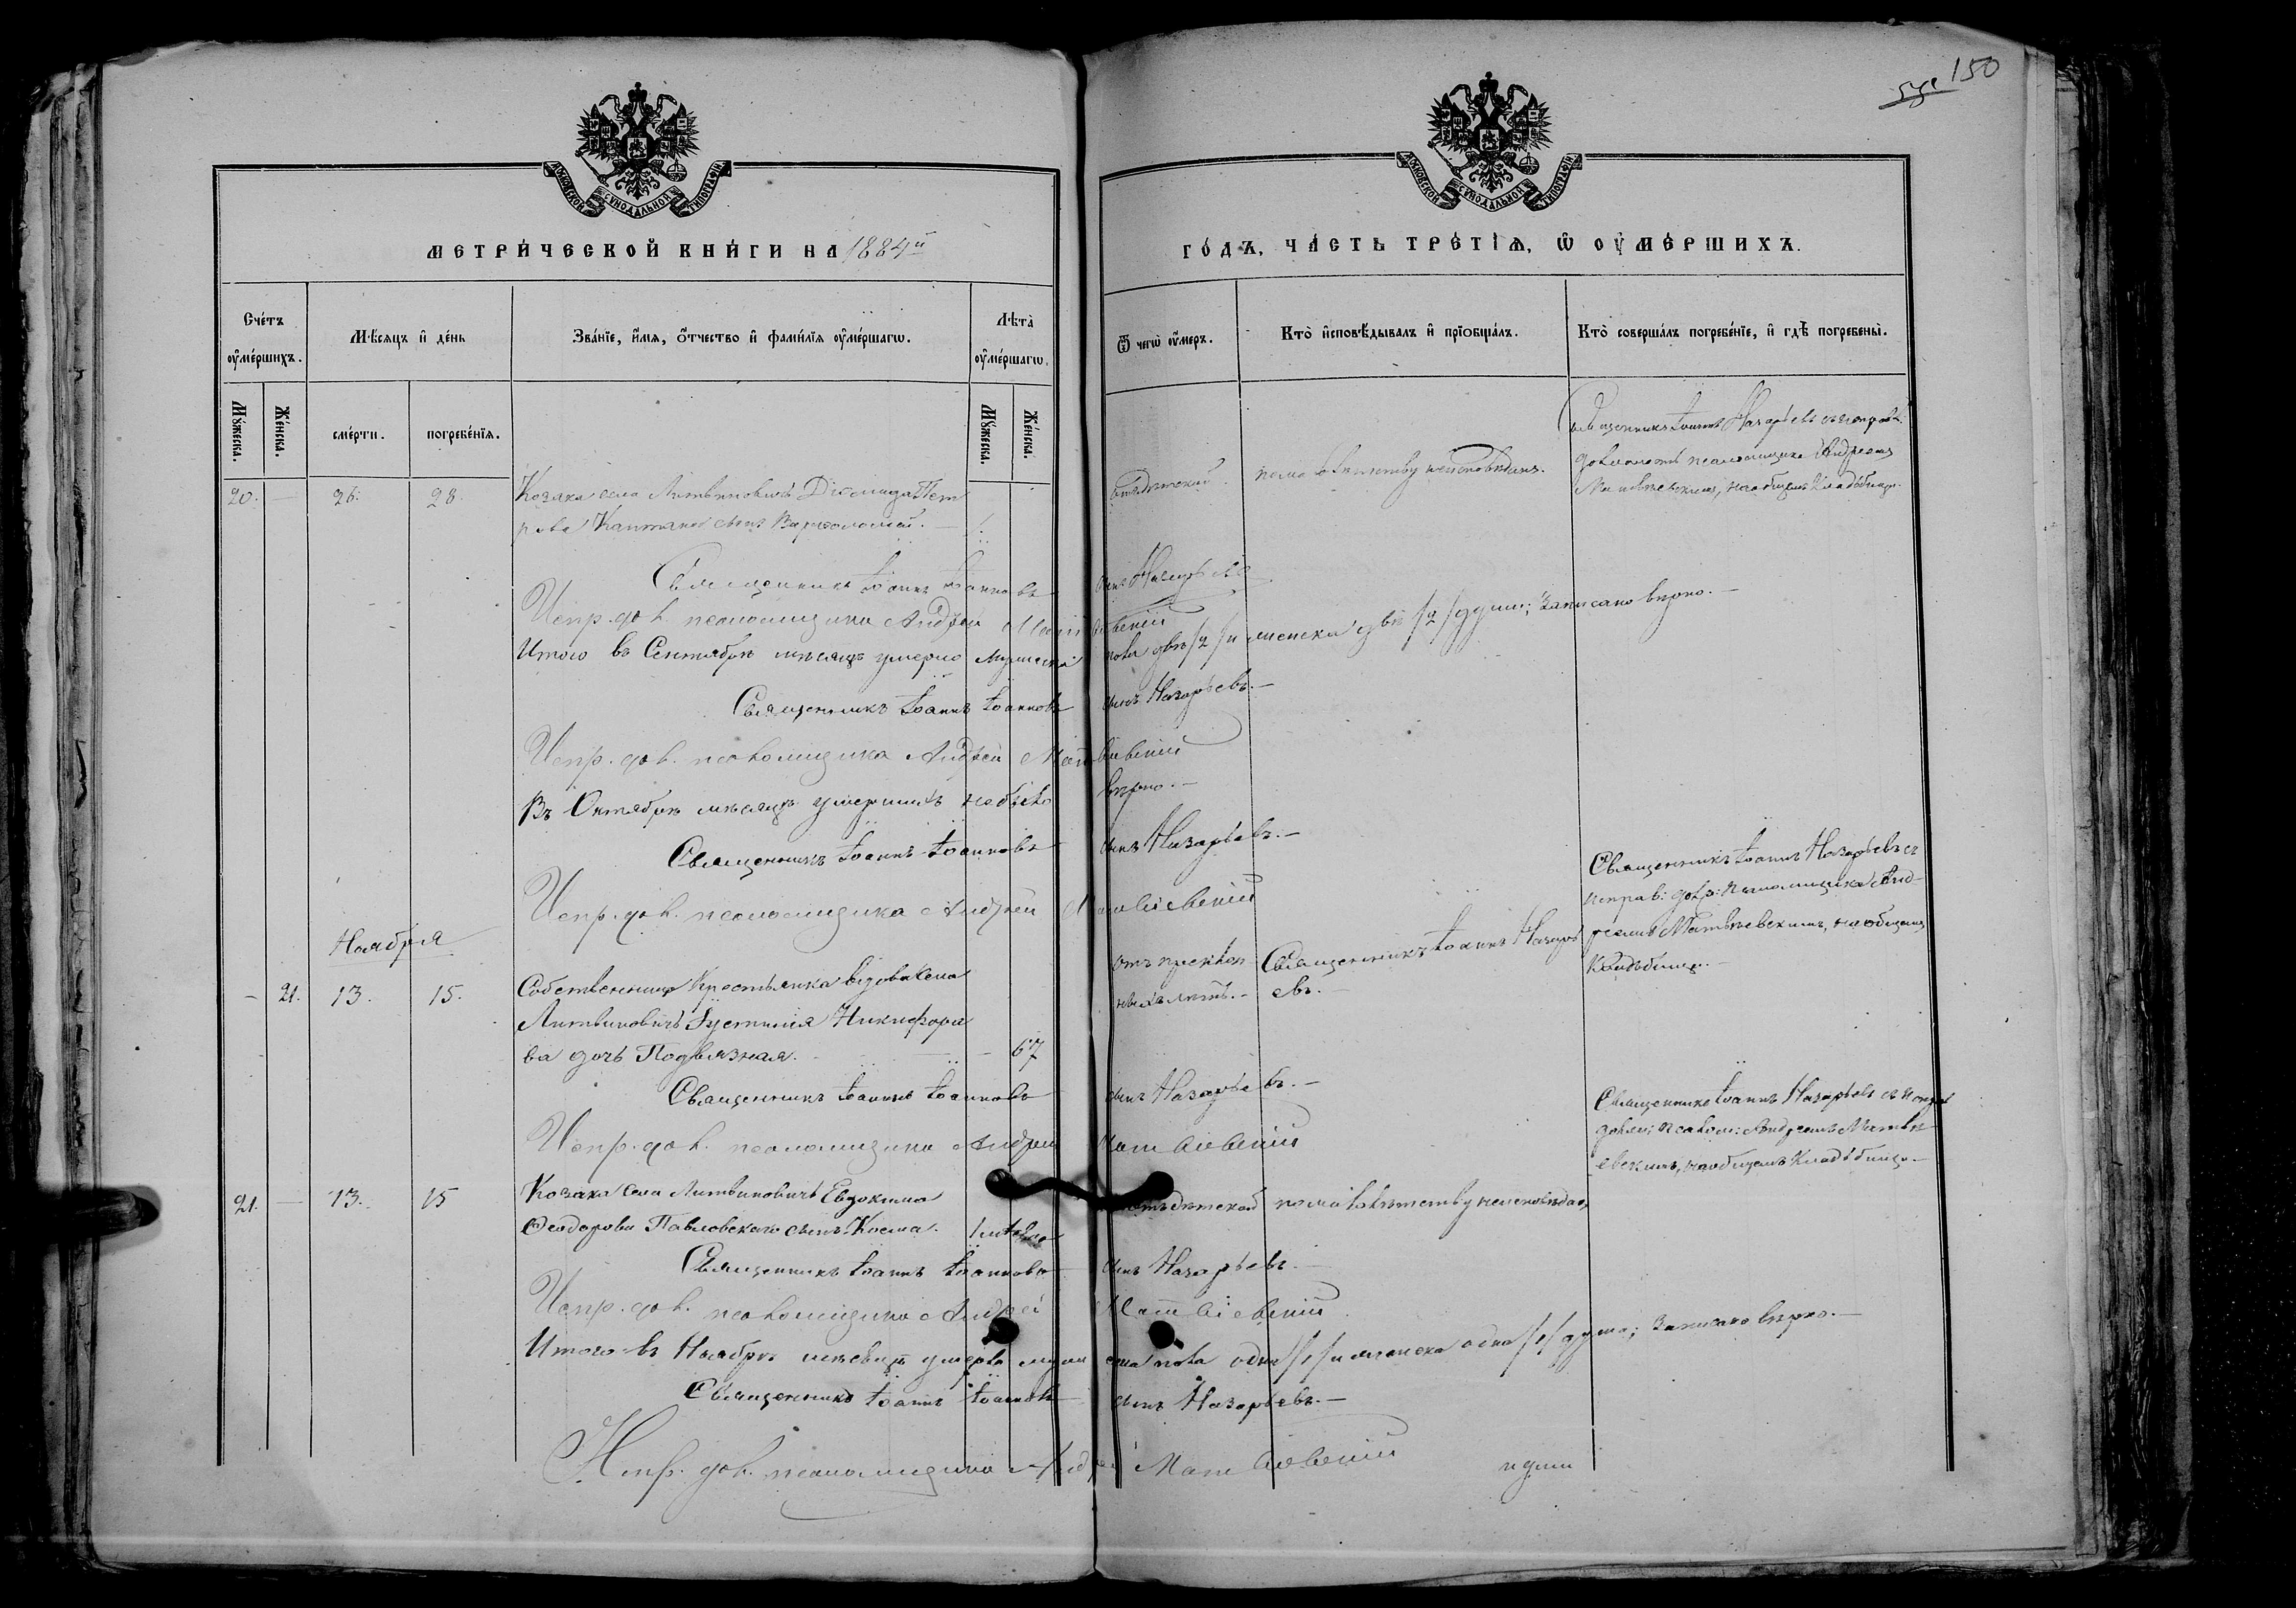 150
МОСКОВСКОЙ СѴНОДАЛЬНОЙ ТИПОГРАФІИ
МОСКОВСКОЙ СѴНОДАЛЬНОЙ ТИПОГРАФІИ
МЕТРИ́ЧЕСКОЙ КНИ́ГИ НА 1884й
ГО́ДЪ, ЧА́СТЬ ТРЕ́ТІѦ, Ѡ҆ ОУ҆МЕ́РШИХЪ.
Сче́тъ оу҆ме́ршихъ.
Мѣ́сяцъ и҆ де́нь
Зва́нїе, и҆́мѧ, ѻ҆́тчество и҆ фами́лїѧ оу҆ме́ршагѡ.
Лѣ́та оу҆ме́ршагѡ.
Ѿ чегѡ̀ оу҆́меръ.
Кто̀ и҆сповѣ́дывалъ и҆ прїѡбща́лъ.
Кто̀ соверша́лъ погребе́нїе, и҆ гдѣ̀ погребены̀.
Мꙋ́жеска.
Же́нска.
сме́рти.
погребе́нїѧ.
Мꙋ́жеска.
Же́нска.
20. — 26. 28.
Козака села Литвиновичь Пет
рова сынъ Варѳоломей. —
по малолѣтству неисповѣданъ.
Священникъ Іоаннъ Назарьевъ
псаломщика Андреемъ
на общемъ кладбищѣ.
Священникъ Іоаннъ Іоанновъ сынъ Назарьевъ
Испр. дол. псаломщика Андрей Матвіевскій
Итого въ Сентябрѣ мѣсяцѣ умерло мужеска пола двѣ /2/ и женска двѣ /2/ души; записано вѣрно. —
Священникъ Іоаннъ Іоанновъ сынъ Назарьевъ. —
Испр. дол. псаломщика Андрей Матвіевскій
Въ Октябрѣ мѣсяцѣ умершихъ небыло вѣрно. —
Священникъ Іоаннъ Іоанновъ сынъ Назарьевъ. —
Испр. дол. псаломщика Андрей Матвіевскій
Ноября
— 21. 13. 15.
Собственница Крестьянка вдова села
Литвиновичь Іустинія Никифоро
ва дочь Подвязная. — 67
отъ преклон
ныхъ лѣтъ. —
Священникъ Іоаннъ Назарь
евъ. —
Священникъ Іоаннъ Назарьевъ съ
исправ: долж: псаломщика Анд-
реемъ Матвѣевскимъ, на общемъ
кладбищѣ. —
Священникъ Іоаннъ Іоанновъ сынъ Назарьевъ. —
Испр. дол. псаломщика Андрей Матвіевскій
21. — 13. 15
Козака села Литвиновичь Евдокима
Ѳеодорова Павловскаго сынъ Косма.
отъ дѣтской
по малолѣтству неисповѣданъ
Священникъ Іоаннъ Назарьевъ съ исправ
должн: псалом: Андреемъ Матвѣ
евскимъ, на общемъ кладбищѣ. —
Священникъ Іоаннъ Іоанновъ сынъ Назарьевъ. —
Испр. дол. псаломщика Андрей Матвіевскій
Итого въ Ноябрѣ мѣсяцѣ умерло муже ска пола одна /1/ и женска одна /1/ душа; записано вѣрно. —
Священникъ Іоаннъ Іоанновъ сынъ Назарьевъ. —
Испр. дол. псаломщика Андрей Матвіевскій